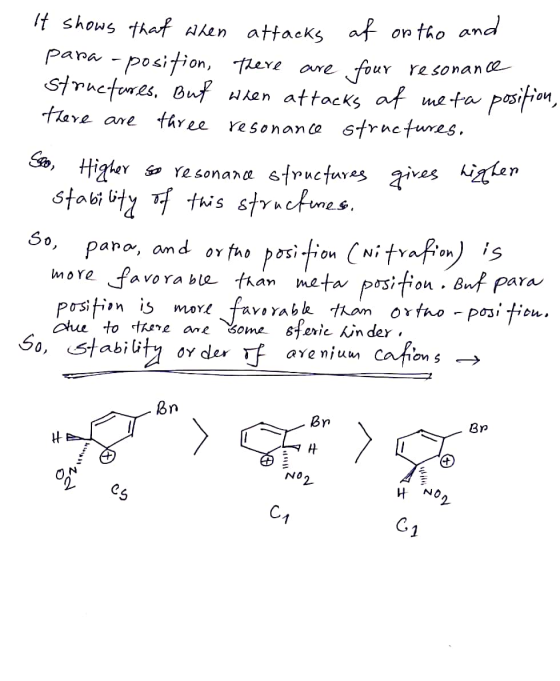 It shows that when attacks at ortho and
para-position, there are four resonance
structures. But when attacks at meta position,
there are three resonance structures.
So, Higher resonance structures gives higher
stability of this structures.
So, para, and ortho position (Nitration) is
more favorable than meta position. But para
position is more favorable than ortho-position.
due to there are some steric hinder.
So, stability order of arenium cations →
Br > Br > Br
H H
⊕ ⊕ ⊕
O2N NO2 H NO2
Cs C1 C1